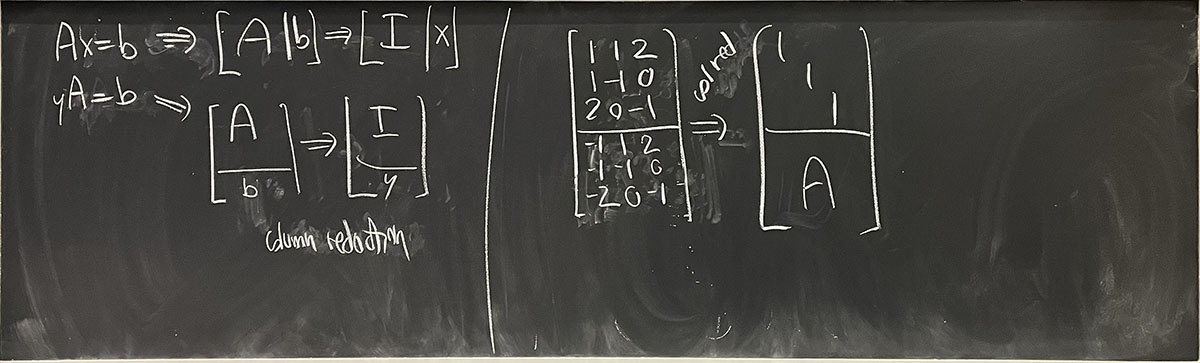 Ax=b ⇒ [A|b] ⇒ [I|x]
yA=b ⇒ [A / b] ⇒ [I / y]
column reduction
[1 1 2
1 -1 0
2 0 -1
-1 1 2
-1 -1 0
-2 0 -1]
col red ⇒
[1
1
1
A]